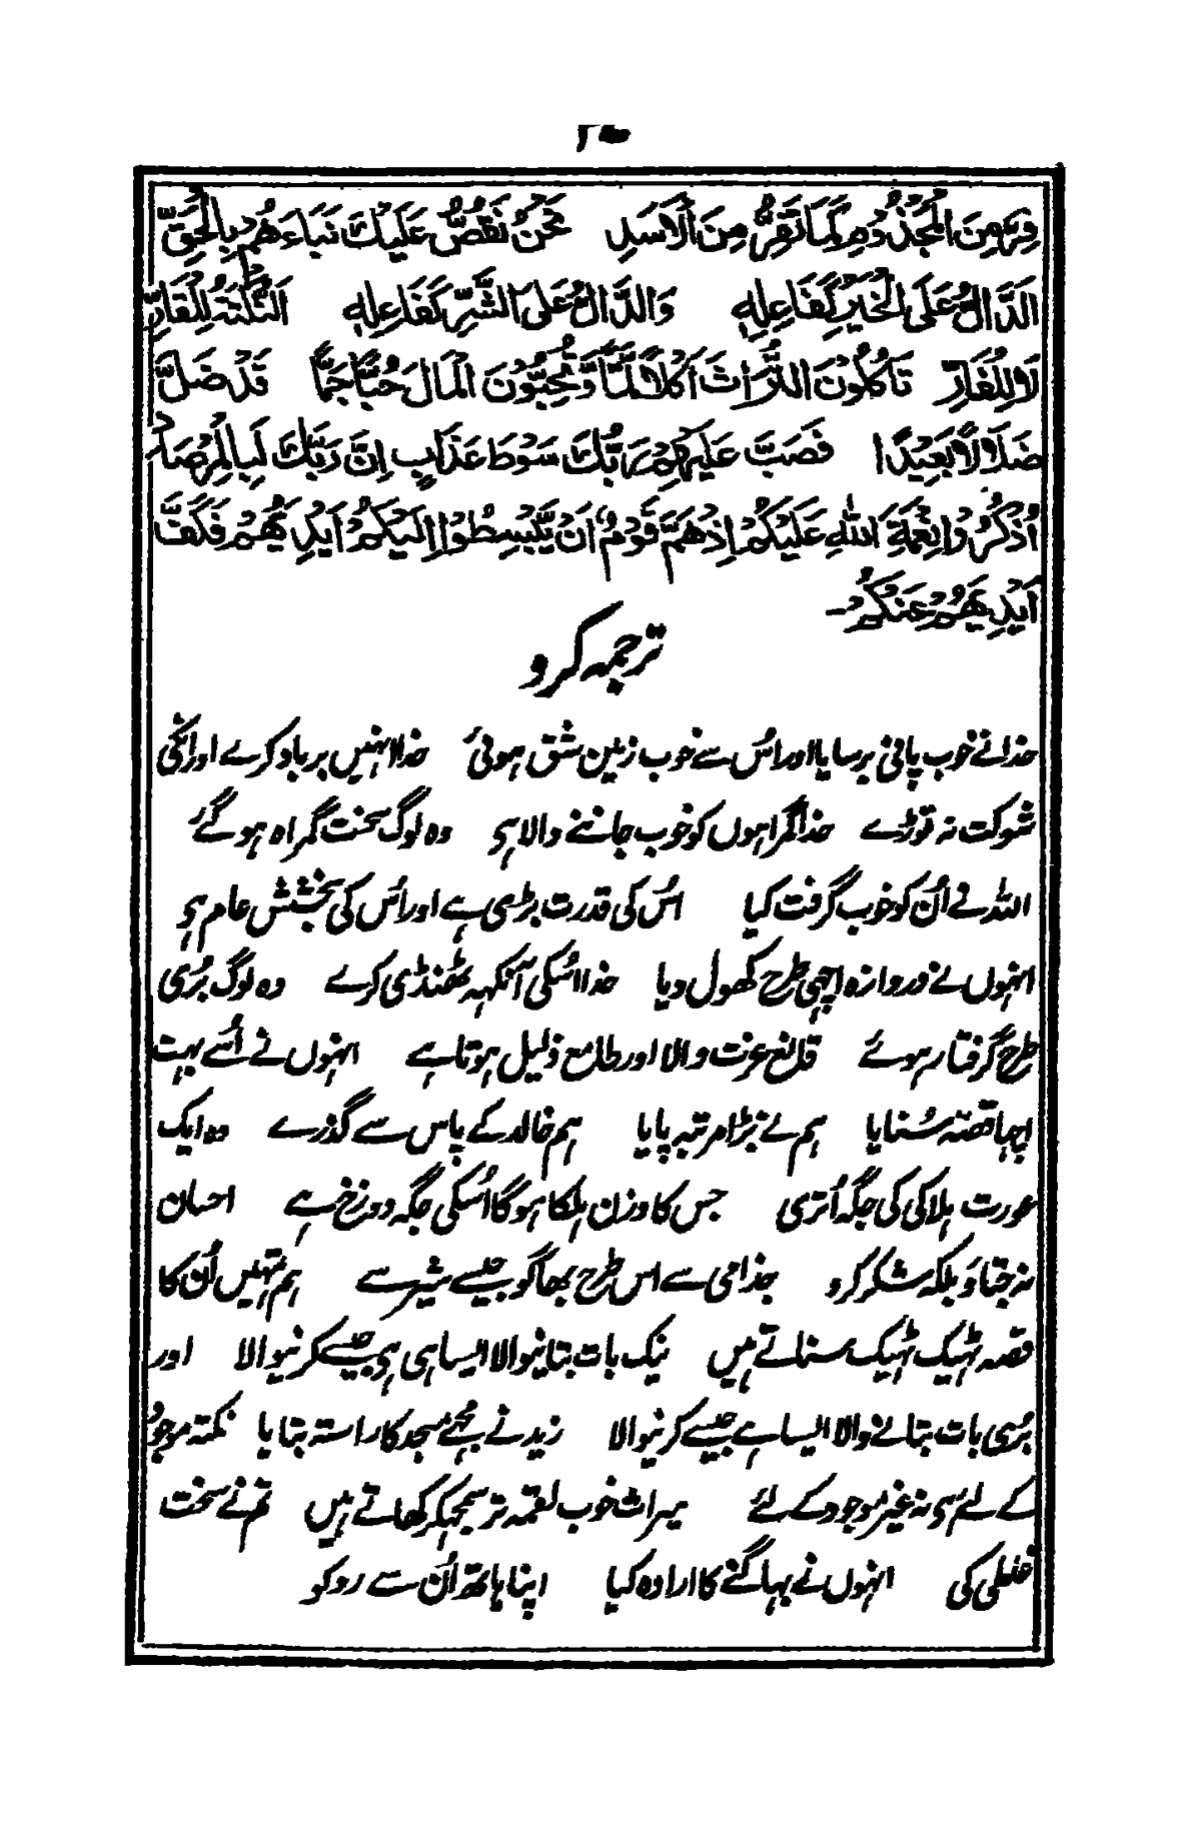 فِرَّ مِنَ الْمَجْذُوْمِ كَمَا تَفِرُّ مِنَ الْاَسَدِ نَحْنُ نَقُصُّ عَلَيْكَ نَبَاءَهُمْ بِالْحَقِّ
اَلدَّالُّ عَلَى الْخَيْرِ كَفَاعِلِهٖ وَالدَّالُّ عَلَى الشَّرِّ كَفَاعِلِهٖ اَلنُّكْتَةُ لِلْقَارِّ
لَا لِلْفَارِّ تَأْكُلُوْنَ التُّرَاثَ اَكْلًا لَّمًّا وَّتُحِبُّوْنَ الْمَالَ حُبًّا جَمًّا قَدْ ضَلَّ
ضَلَالًا بَعِيْدًا فَصَبَّ عَلَيْهِمْ رَبُّكَ سَوْطَ عَذَابٍ اِنَّ رَبَّكَ لَبِالْمِرْصَادِ
اُذْكُرُوْا نِعْمَةَ اللهِ عَلَيْكُمْ اِذْ هَمَّ قَوْمٌ اَنْ يَّبْسِطُوْا اِلَيْكُمْ اَيْدِيَهُمْ فَكَفَّ
اَيْدِيَهُمْ عَنْكُمْ۔
ترجمہ کرو
خدا نے خوب پانی برسایا اور اُس سے خوب زمین شق ہوئی خدا انہیں برباد کرے اور انکی
شوکت نہ توڑے خدا گمراہوں کو خوب جاننے والا ہی وہ لوگ سخت گمراہ ہو گئے
اللہ نے اُن کو خوب گرفت کیا اُس کی قدرت بڑی ہے اور اُس کی بخشش عام ہی
انہوں نے دروازہ اچھی طرح کھول دیا خدا اُسکی آنکہہ ٹھنڈی کرے وہ لوگ بُری
طرح گرفتار ہوئے قانع عزت والا اور طامع ذلیل ہوتا ہے انہوں نے اُسے بہت
اچہا قصّہ سُنایا ہم نے بڑا مرتبہ پایا ہم خالد کے پاس سے گذرے وہ ایک
عورت ہلاکی کی جگہ اُتری جس کا وزن ہلکا ہوگا اُسکی جگہ دوزخ ہے احسان
نہ جتاؤ بلکہ شکر کرو جذامی سے اس طرح بھاگو جیسے شیر سے ہم تمہیں اُن کا
قصہ ٹہیک ٹہیک سناتے ہیں نیک بات بتانیوالا ایسا ہی ہی جیسے کرنیوالا اور
بُری بات بتانے والا ایسا ہے جیسے کرنیوالا زید نے مجھے مسجد کا راستہ بتایا نکتہ موجود
کے لئے ہی نہ غیر موجود کے لئے میراث خوب لقمہ تر سمجہکر کھاتے ہیں تم نے سخت
غلطی کی انہوں نے بہاگنے کا ارادہ کیا اپنا ہاتھ اُن سے روکو